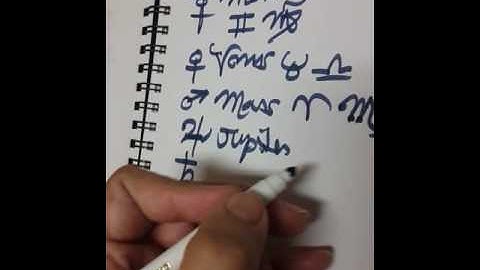 ☿
♊ ♍
♀ Venus ♉ ♎
♂ Mars ♈ ♏
♃ Jupiter
♄